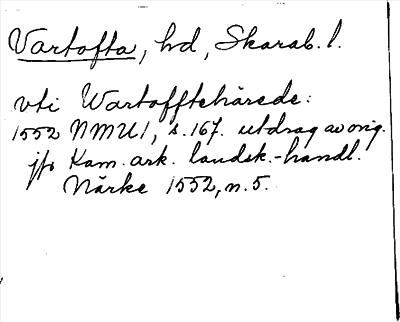 Vartofta, hd, Skarab. l.
vti Wartofftehärede:
1552 NMU 1, s. 167. utdrag av orig.
jfr Kam. ark. landsk.-handl.
Närke 1552, n. 5.